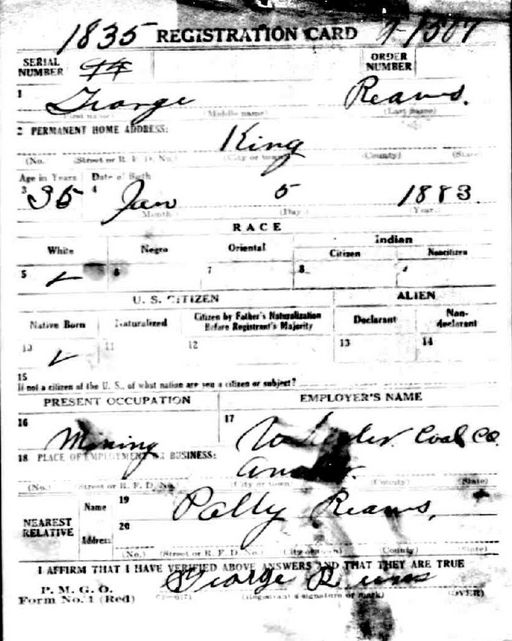 1835 REGISTRATION CARD
SERIAL NUMBER 94 ORDER NUMBER
1 George Reams.
(First name) (Middle name) (Last name)
2 PERMANENT HOME ADDRESS: King
(No. (Street or R. F. D. No.) (City or town) (County) (State)
Age in Years Date of Birth
3 35 4 Jan 5 1883.
Month (Day) Year.
RACE
White Negro Oriental Indian
Citizen Noncitizen
5 ✓ 6 7 8
U. S. CITIZEN ALIEN
Native Born Naturalized Citizen by Father's Naturalization Before Registrant's Majority Declarant Non-declarant
10 ✓ 11 12 13 14
15
If not a citizen of the U. S., of what nation are you a citizen or subject?
PRESENT OCCUPATION EMPLOYER'S NAME
16 Mining 17 Coal Co.
18 PLACE OF EMPLOYMENT OR BUSINESS:
(No.) (Street or R. F. D. No.) (City or town) (County) (State)
NEAREST RELATIVE Name 19 Polly Reams,
Address 20
(No.) (Street or R. F. D. No.) (City or town) County) (State)
I AFFIRM THAT I HAVE VERIFIED ABOVE ANSWERS AND THAT THEY ARE TRUE
George Reams
P. M. G. O.
Form No. 1 (Red) (Registrant's signature or mark) (OVER)